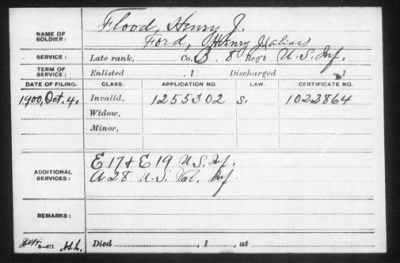 NAME OF SOLDIER: Flood, Henry J.
Ford, Henry (alias)
SERVICE: Late rank, Co. B. 8 Reg't U.S. Inf.
TERM OF SERVICE: Enlisted , 1 Discharged , 1
DATE OF FILING. CLASS. APPLICATION NO. LAW. CERTIFICATE NO.
1900, Oct. 4. Invalid, 1255302 S. 1022864
Widow,
Minor,
ADDITIONAL SERVICES: E 17 & E 19 U.S. Inf.
A 28 U.S. Vol. Inf
REMARKS:
Died , 1 , at